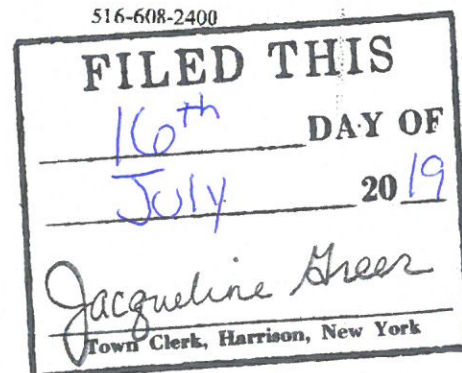 516-608-2400
FILED THIS
16th DAY OF
July 2019
Jacqueline Greer
Town Clerk, Harrison, New York